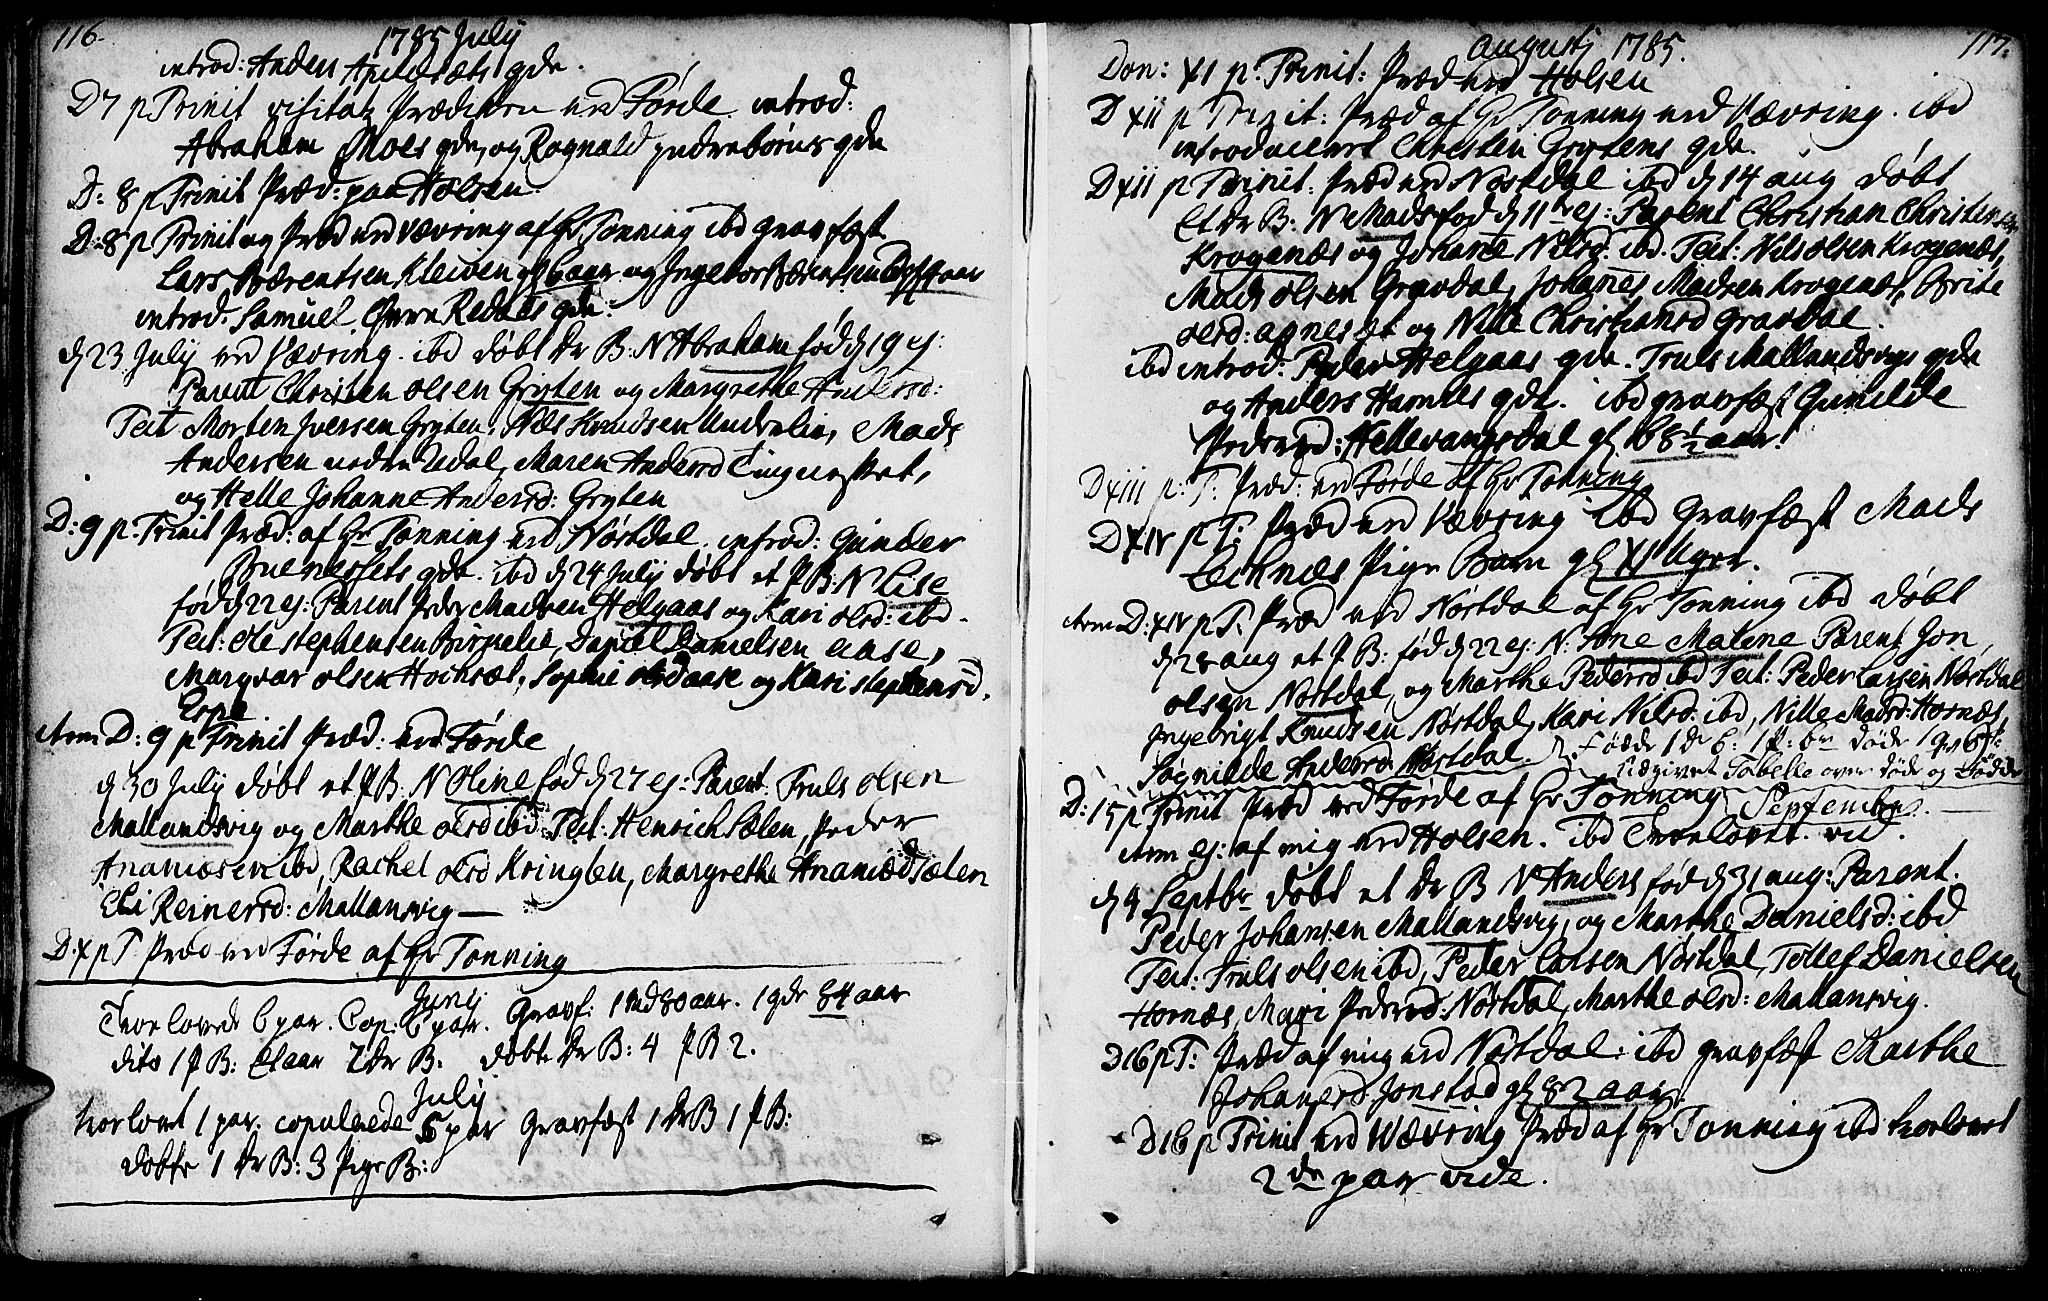 116.
1785 July
introd: Anders Apelsæts qde.
D 7 p Trinit visitatz Prædiken ved Førde. introd:
Abraham Moes qde, og Rognald qde
D: 8 p Trinit Præd: paa Holsen.
D: 8 p Trinit og Præd ved Vævring af Hr Tonning ibd gravfæst
Lars Bærentsen Kleiven aar og Ingebor Bærentsen aar
introd. Samuel Rednes qde.
d 23 July ved Vævring. ibd døbt Dr B: N Abraham fød d 19 ej:
Parent Christen olsen Gryten og Margrethe Andersd:
Test Morten Iversen Gryten, Nils Knudsen Underlie, Mads
Andersen Udal, Maren Andersd
og Helle Johanne Andersd: Gryten
D: 9 p. Trinit Præd: af Hr Tonning ved Nørdal. introd: Gunder
qde. ibd d 24 July døbt et P B: N Lise
fød d 22 ej: Parent Peder Madsen Helgaas og Kari olsd: ibd.
Test: Ole stephensen Birkelie, Daniel Danielsen aase,
olsen Hochsæt, Sophie olsd aase og Kari stephensd.
Espe
Anm D: 9 p Trinit Præd: ved Førde
d 30 July døbt et P B: N Oline fød d 27 ej: Parent: Truls olsen
Mallandsvig og Marthe olsd ibd Test: Henrich Sælen, Peder
Ananiæsen ibd, Rachel olsd Kringlen, Margrethe Ananiæd Sælen
Eli Reinersd: Mallansvig —
D. X p T Præd ved Førde af Hr Tonning
Juny
Trolovede 6 par. Cop: 6 par. Gravf: 1 Md 80 aar. 1 qde 84 aar
dito 1 P B: aar 2 Dr B. døbte Dr B: 4 P B 2.
July
trolovet 1 par. copulerede 5 par Gravfæst 1 Dr B 1 P B:
døbte 1 Dr B: 3 Pige B:
Augustj 1785.
117.
Don: XI p. Trinit: Præd ved Holsen
D XII p Trinit: Præd af Hr Tonning ved Vævring. ibd
introduceret Christen Grytens qde.
D XII p Trinit: Præd ved Nørdal ibd d 14 aug døbt
et Dr B: N Mads fød d 11te ej: Parent Christian Christensen
Krogenæs og Johane Nilsd: ibd. Test: Nils olsen Krogenæs,
Mads olsen Gravdal, Johanes Madsen Krogenæs, Brite
olsd: og Nille Christiansd Gravdal.
ibd introd: Peder Helgaas qde. Truls Mallandsvigs qde
og Anders Hamnes qde. ibd gravfæst Gunilde
Pedersd: Hellevangsdal gl 68 1/2 aar.
D XIII p: T: Præd: ved Førde af Hr Tonning
D XIV p T: Præd ved Vævring ibd Gravfæst Mads
Lechnæs Pige Barn gl XI Uger.
Anm D: XIV p T: Præd ved Nørdal af Hr Tonning ibd døbt
d 28 aug et P B: fød d 22 ej: N: Ane Malene Parent Jon
olsen Nørdal, og Marthe Pedersd ibd Test: Peder Larsen Nørdal
Ingebrigt Knudsen Nørdal, Kari Nilsd: ibd, Nille Madsd: Hornæs,
Søgnilde Andersd Nørdal.
Fødde 1 Dr b: 1 P: bn døde
Udgivet Tabelle over døde og Fødde
D: 15 p Trinit Præd ved Førde af Hr Tonning
Septembr. —
Anm ej: af mig ved Holsen. ibd Trolovet vid.
d 4 Septbr døbt et Dr B N Anders fød d 31 aug: Parent.
Peder Johansen Mallandsvig, og Marthe Danielsd: ibd
Test: Truls olsen ibd, Peder Larsen Nørdal, Tollef Danielsen
Hornæs, Mari Pedersd: Nørdal, Marthe olsd: Mallansvig.
D 16 p T: Præd af mig ved Nørdal: ibd gravfæst Marthe
Johanesd Jonstad gl 82 aar
D 16 p Trinit ved Vævring Præd af Hr Tonning ibd trolovet
2de par vide.